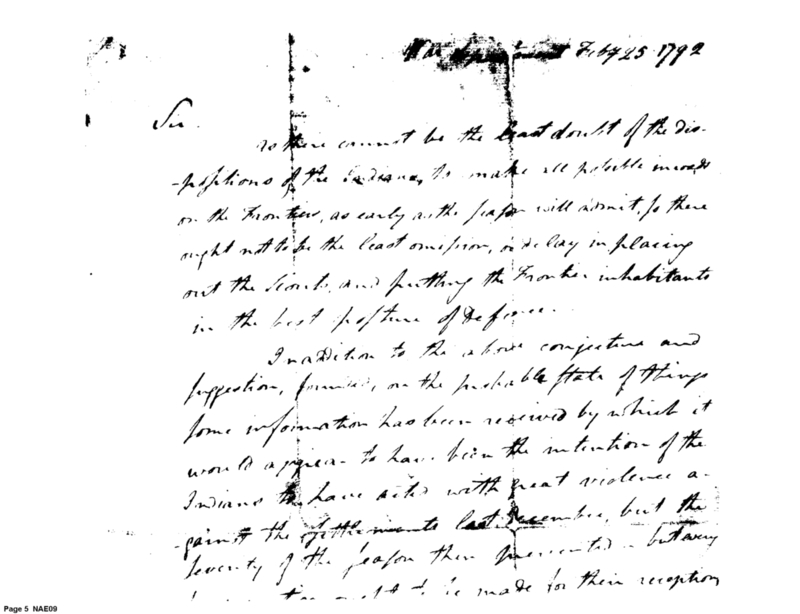 War Department Feby 25 1792
Sir.
As there cannot be the least doubt of the dis-
-positions of the Indians, to make all possible inroads
on the Frontiers, as early as the season will admit, so there
ought not to be the least omission, or delay in placing
out the Scouts, and putting the Frontier inhabitants
in the best posture of Defence.
In addition to the above conjecture and
suggestion, founded, on the probable state of things
some information has been received by which it
would appear to have been the intention of the
Indians to have acted with great violence a-
-gainst the settlements last December, but the
severity of the season then prevented - but every
ought to be made for their reception
Page 5 NAE09